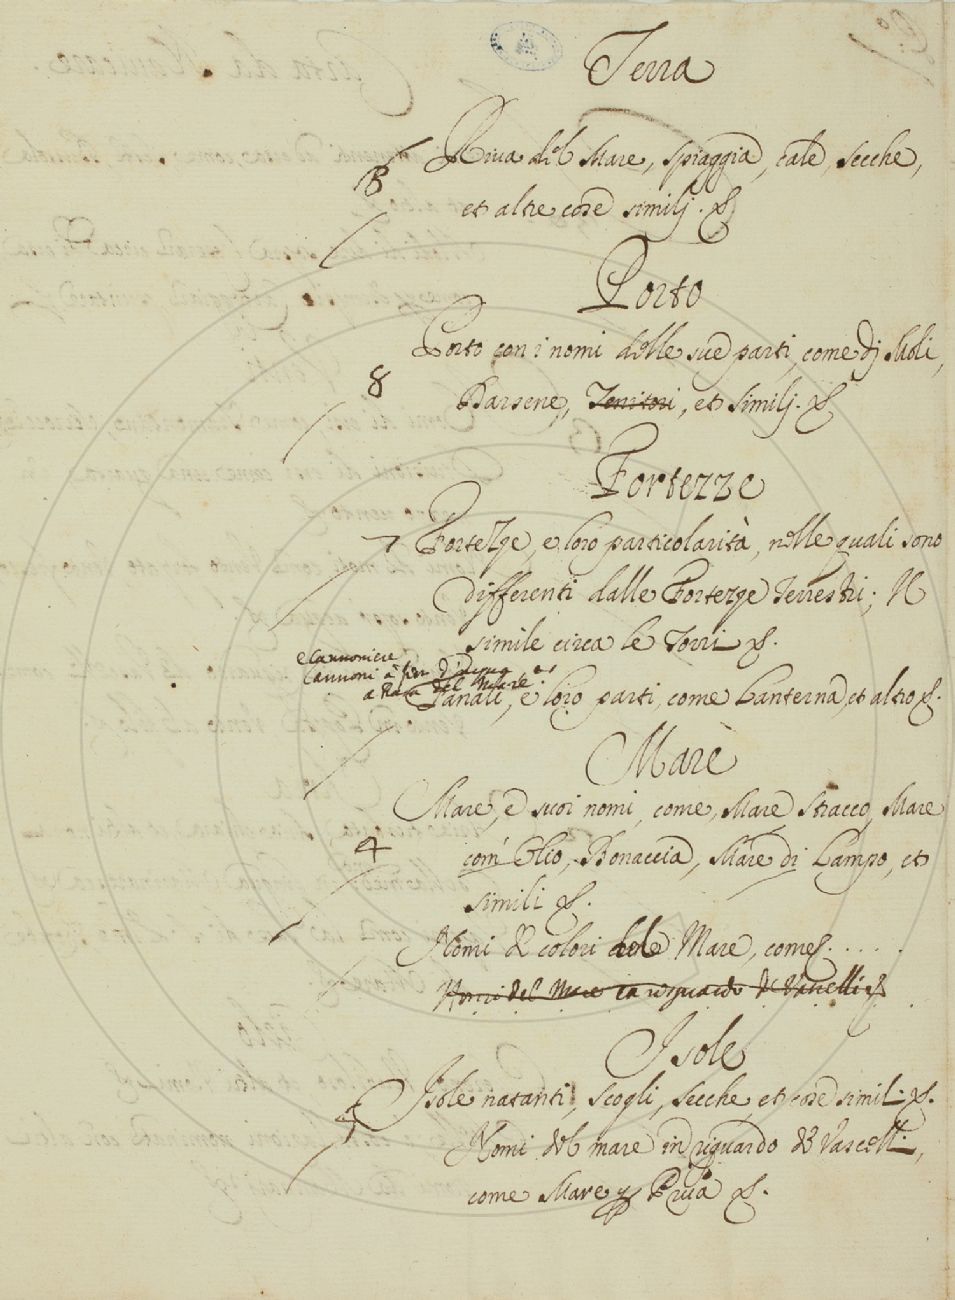 Terra
8 Riva del Mare, spiaggia, cale, secche,
et altre cose similj. &
Porto
Porto con i nomi delle sue parti, come dj Moli,
8 Darsene, Territori, et similj. &
Fortezze
7 Fortezze, e loro particolarità, nelle quali sono
differenti dalle Fortezze Terrestri; Il
simile circa le Torri &.
e Cannoniere
Cannoni à fior d'acqua
a Raso del Mare
Fanali, e loro parti, come Lanterna, et altro &.
Mare
Mare, e suoi nomi, come, Mare stracco, Mare
4 com' Olio, Bonaccia, Mare di Lampo, et
simili &.
Nomi de colori del Mare, come . . . . .
Nomi del Mare in riguardo de Vascelli &
Isole
5 Isole natanti, scogli, secche, et cose simili &.
Nomi del mare in riguardo de Vascelli,
come Mare Prua &.